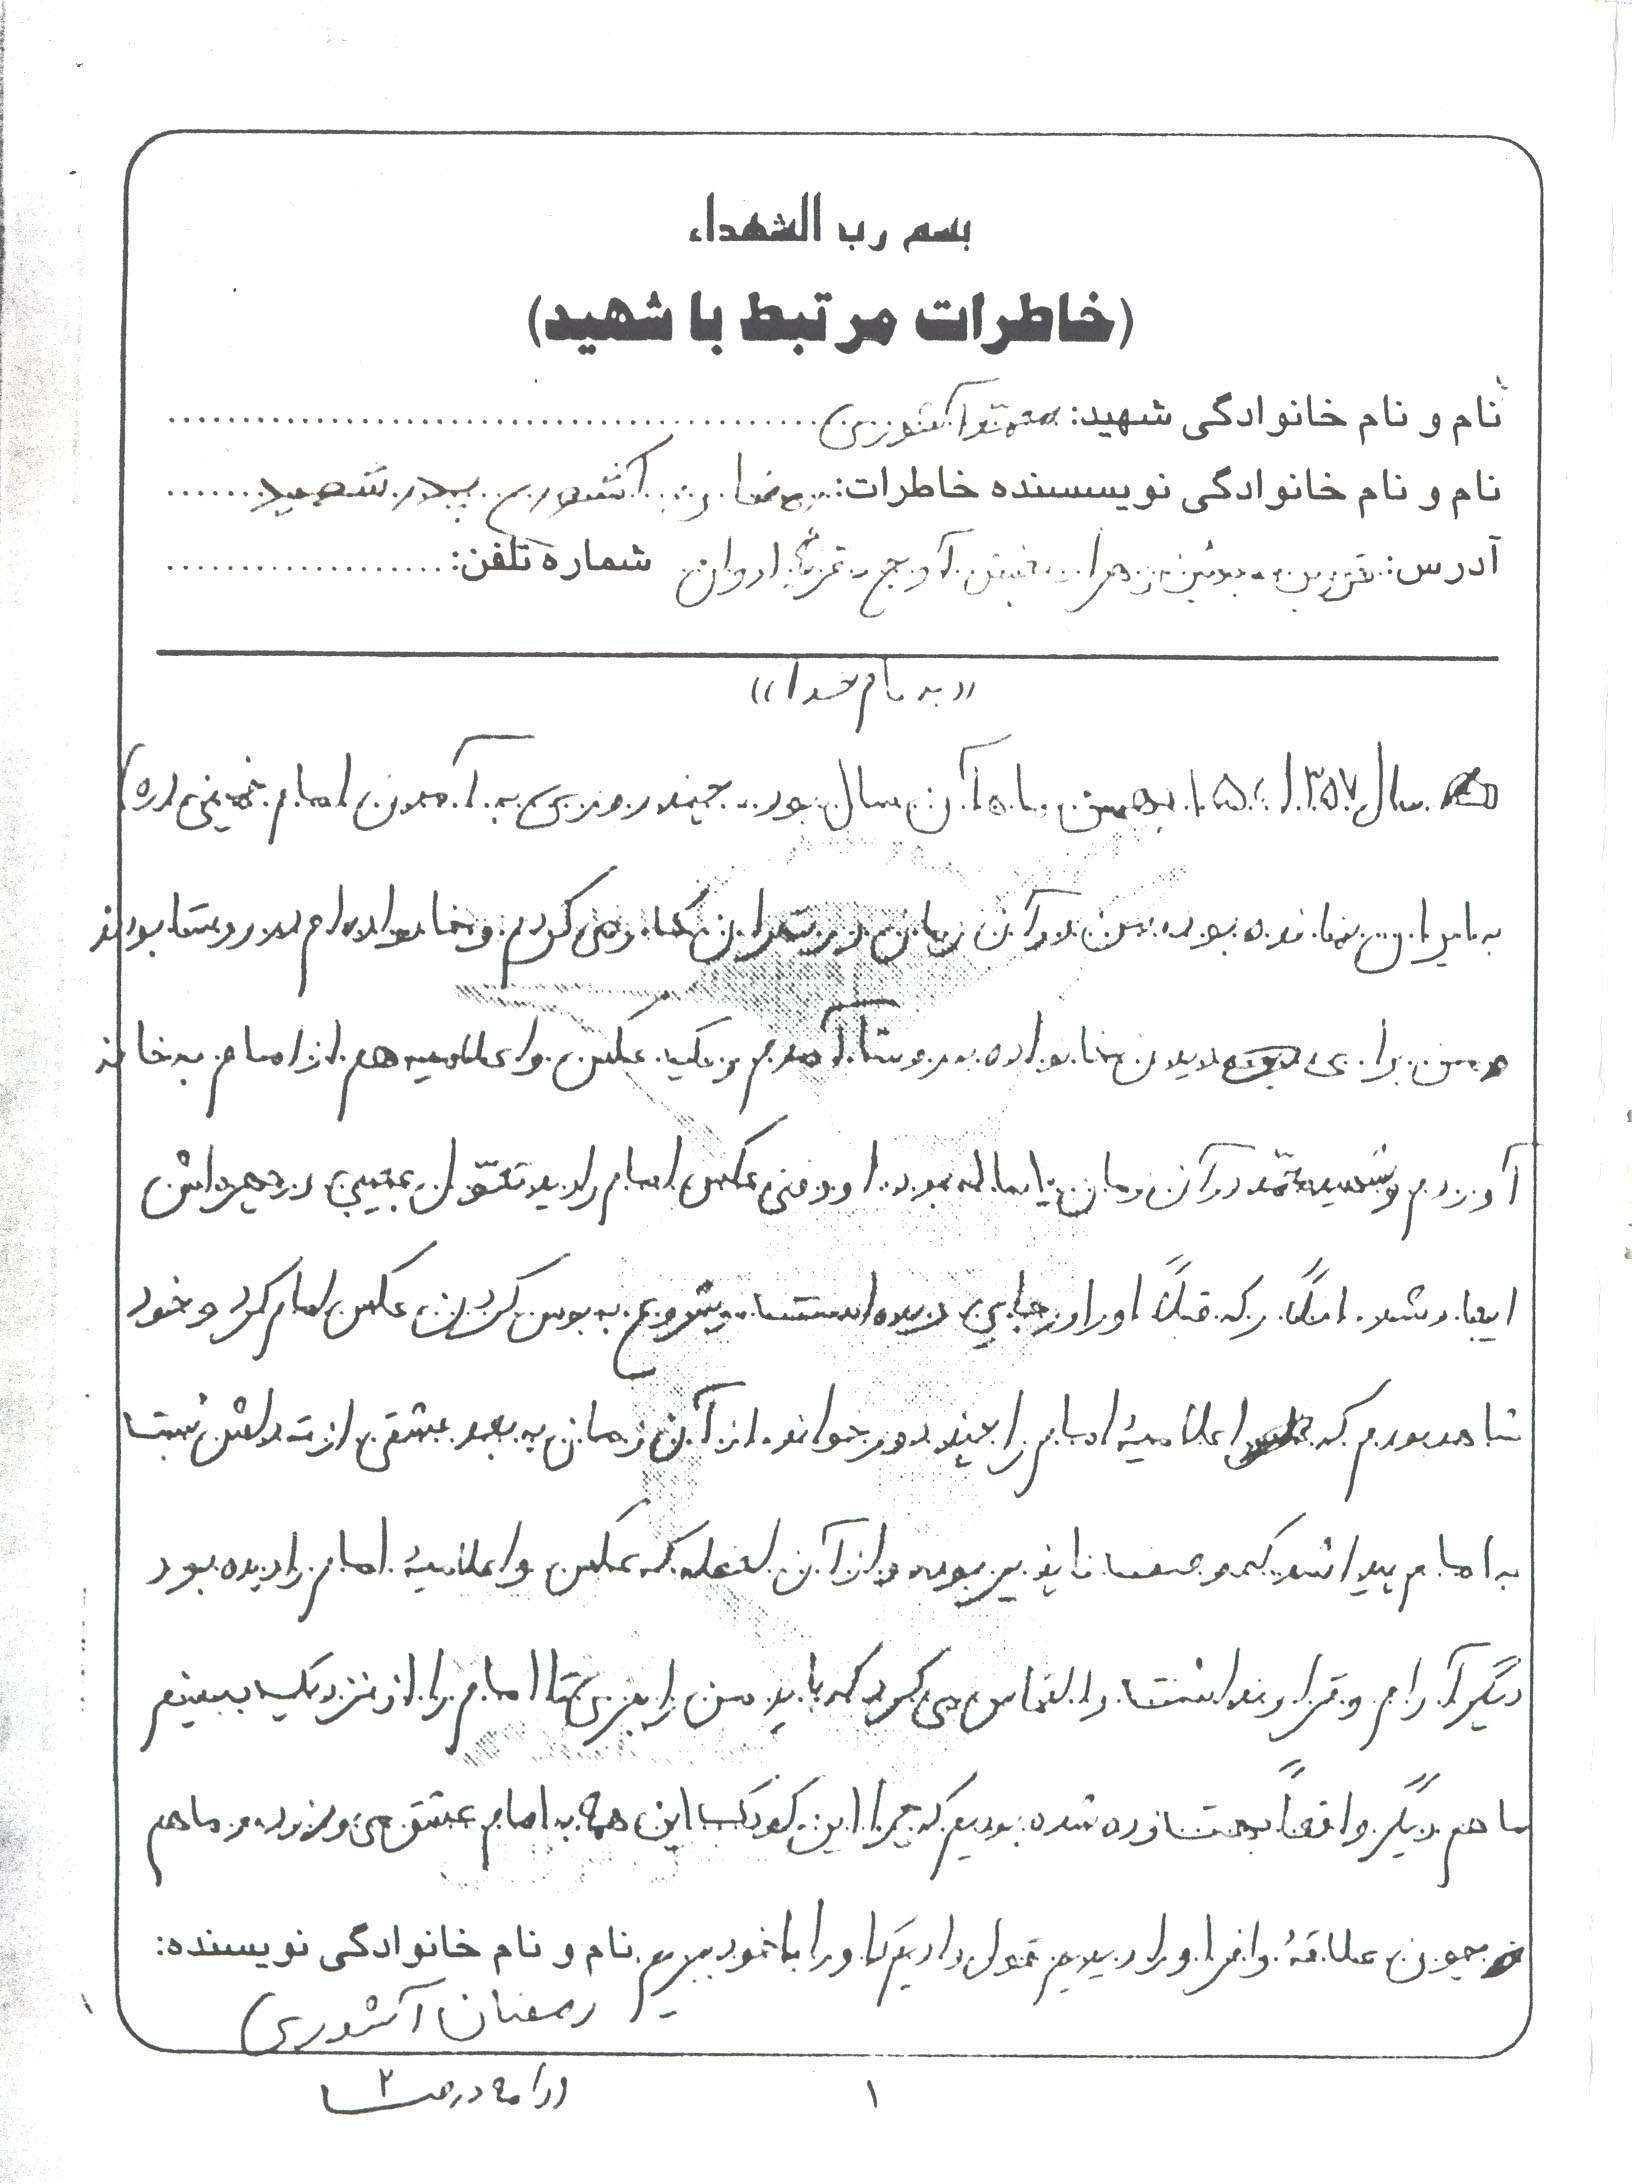 بسم رب الشهداء
(خاطرات مرتبط با شهید)
نام و نام خانوادگی شهید: محمد آشوری
نام و نام خانوادگی نویسنده خاطرات: رمضان آشوری پدر شهید
آدرس: قزوین - بوئین زهرا - بخش آوج - قریهٔ اروان شماره تلفن:
«به نام خدا»
سال ۱۳۵۷ بهمن ماه آن سال بود. چند روزی به آمدن امام خمینی (ره)
به ایران نمانده بود. من در آن زمان در تهران کار می کردم و خانواده ام در روستا بودند
من برای دیدن خانواده به روستا آمدم و یک عکس و اعلامیه هم از امام به خانه
آوردم و شهید محمد در آن زمان ساله بود. او وقتی عکس امام را دید تحول عجیبی در چهره اش
ایجاد شد. انگار که قبلاً او را در جایی دیده است و شروع به بوس کردن عکس امام کرد و خود
شاهد بودم که اعلامیهٔ امام را چند دور خواند. از آن زمان به بعد عشقی از ته دلش نسبت
به امام پیدا شد که وصف ناپذیر بود و از آن لحظه که عکس و اعلامیهٔ امام را دیده بود
دیگر آرام و قرار نداشت و التماس می کرد که باید من را ببری تا امام را از نزدیک ببینم
ما هم دیگر واقعاً بهت زده شده بودیم که چرا این کودک این همه به امام عشق می ورزد و ما هم
چون علاقهٔ وافر او را دیدیم قول دادیم که او را با خود ببریم نام و نام خانوادگی نویسنده:
رمضان آشوری
ادامه در ص ۲
۱